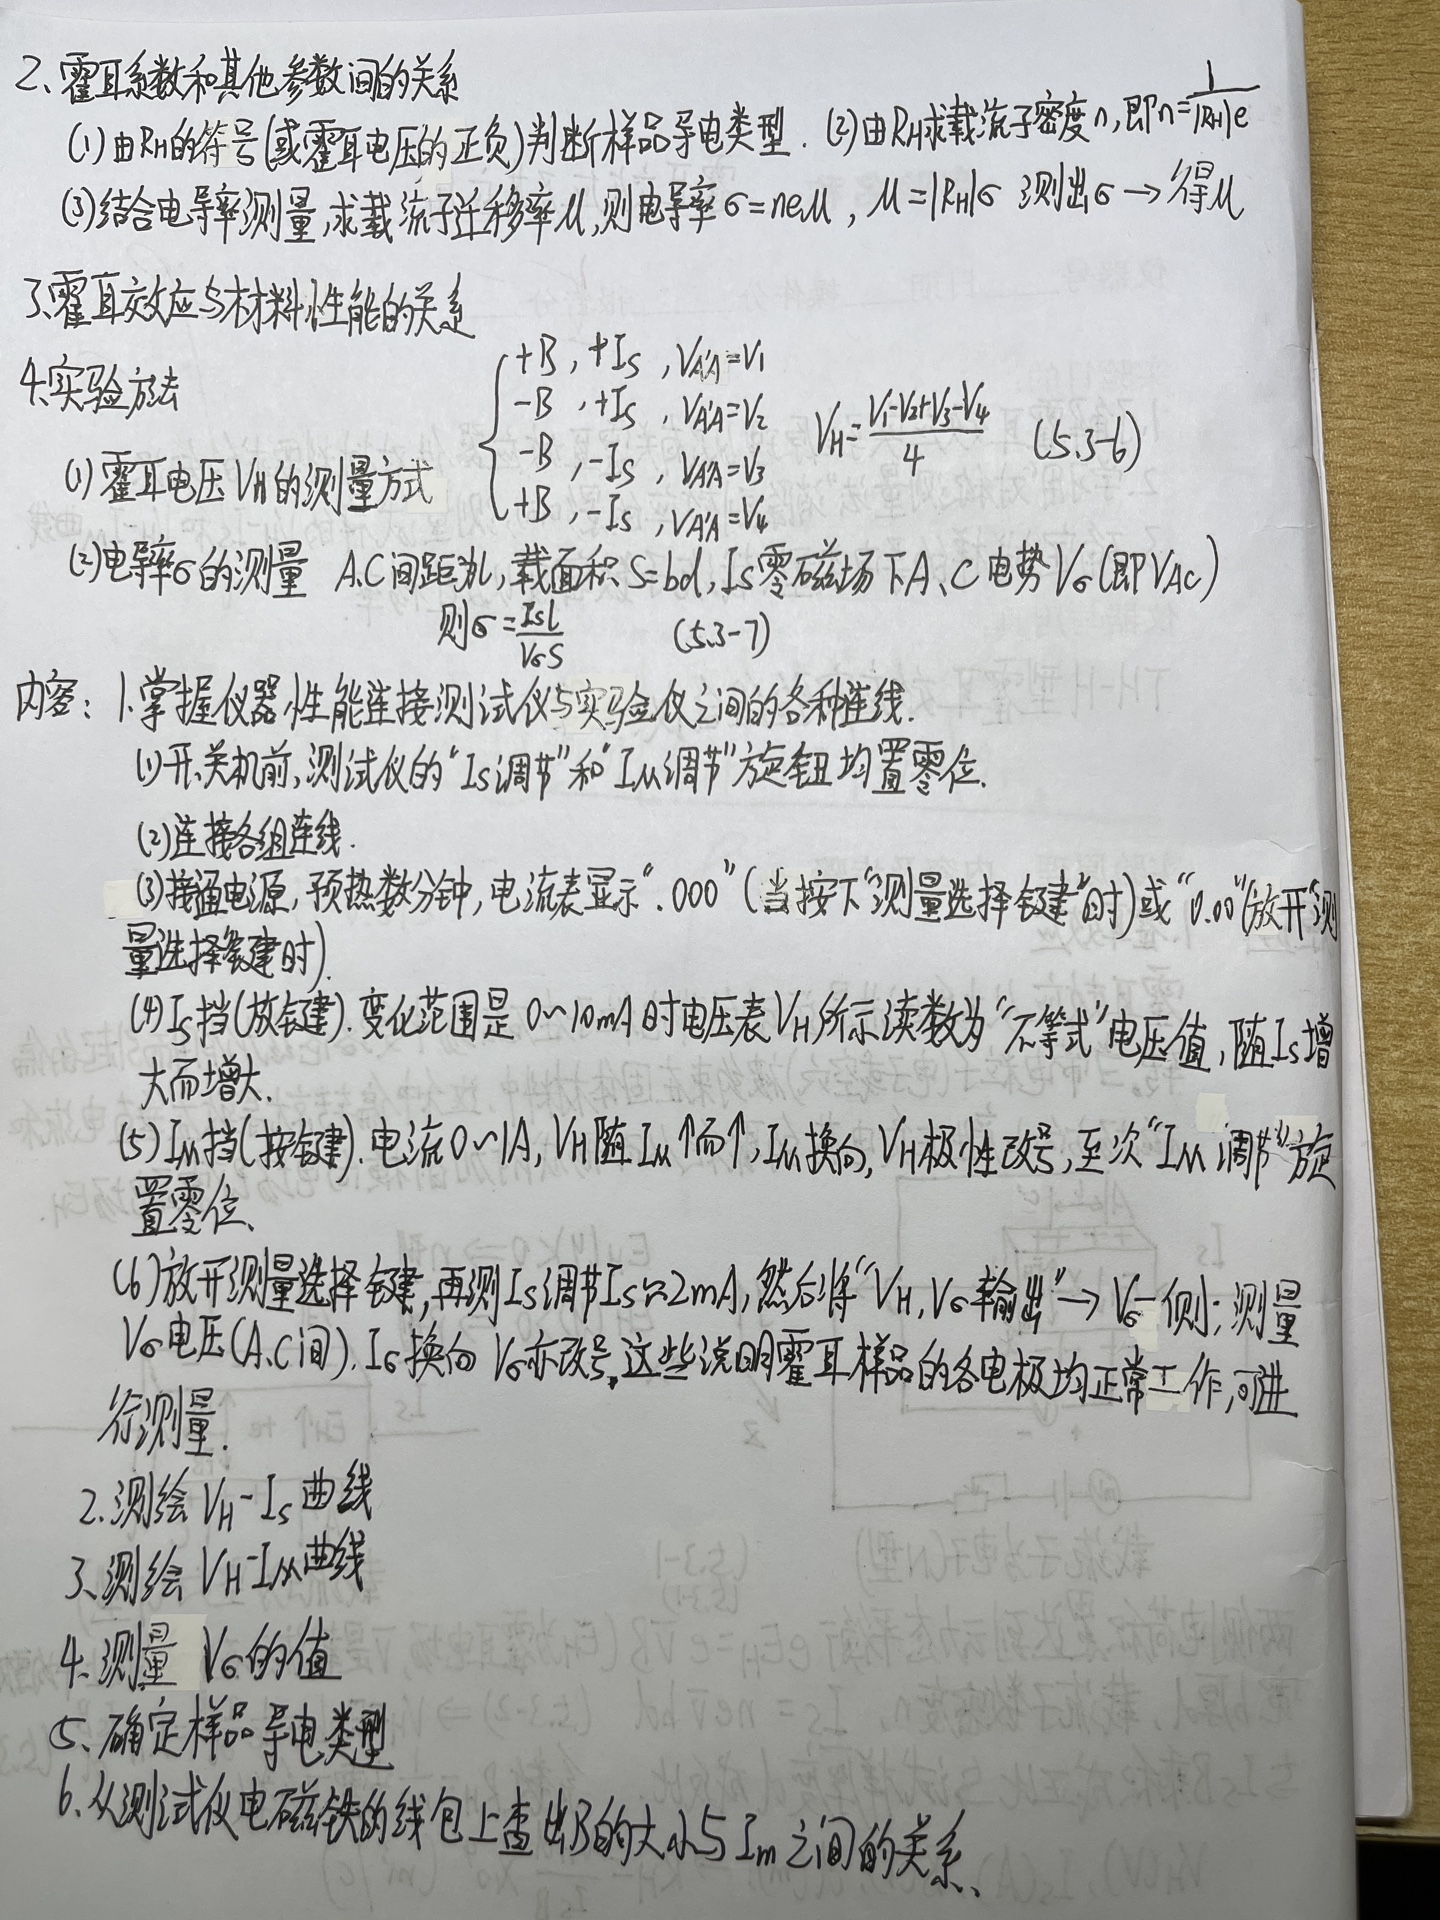 2、霍耳系数和其他参数间的关系
(1)由RH的符号(或霍耳电压的正负)判断样品导电类型. (2)由RH求载流子密度n,即n=1/|RH|e
(3)结合电导率测量,求载流子迁移率μ,则电导率σ=neμ, μ=|RH|σ 测出σ→得μ
3.霍耳效应与材料性能的关系
4.实验方法
(1)霍耳电压VH的测量方式
+B,+Is,VA'A=V1
-B,+Is,VA'A=V2
-B,-Is,VA'A=V3
+B,-Is,VA'A=V4
VH=(V1-V2+V3-V4)/4 (5.3-6)
(2)电导率σ的测量 A、C间距为l,载面积S=bd,Is零磁场下A、C电势Vσ(即VAC)
则σ=Isl/VσS (5.3-7)
内容: 1.掌握仪器性能连接测试仪与实验仪之间的各种连线.
(1)开、关机前,测试仪的"Is调节"和"IM调节"旋钮均置零位.
(2)连接各组连线.
(3)接通电源,预热数分钟,电流表显示".000"(当按下"测量选择键"时)或"0.00"(放开"测
量选择键时).
(4)Is挡(放键).变化范围是0~10mA时电压表VH所示读数为"不等式"电压值,随Is增
大而增大.
(5)IM挡(按键).电流0~1A,VH随IM↑而↑,IM换向,VH极性改号,至次"IM调节"旋
置零位、
(6)放开测量选择键,再测Is调节Is≈2mA,然后将"VH,Vσ输出"→Vσ侧;测量
Vσ电压(A、C间).Iσ换向 Vσ亦改号,这些说明霍耳样品的各电极均正常工作,可进
行测量.
2.测绘 VH-Is曲线
3、测绘 VH-IM曲线
4、测量 Vσ的值
5、确定样品导电类型
6、从测试仪电磁铁的线包上查出B的大小与Im之间的关系、